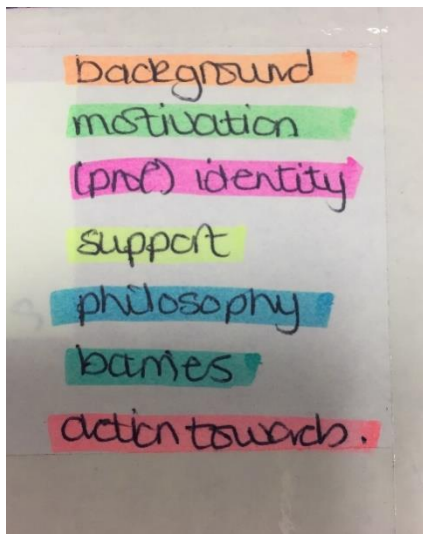 background
motivation
(prof) identity
support
philosophy
barries
action towards.